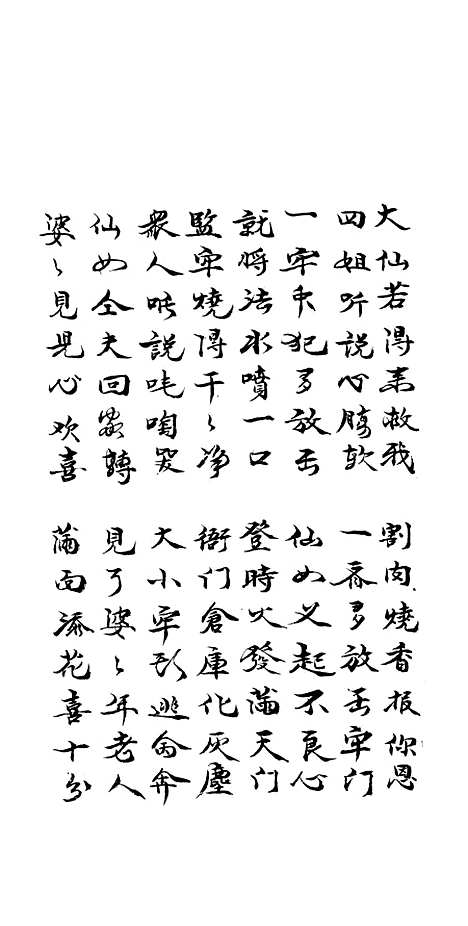 大仙若得来救我 割肉燒香报你恩
四姐听說心腸软 一齐多放出牢门
一牢犯多放出 仙女又起不良心
就將法水噴一口 登時火發滿天门
監牢燒得干々净 衙门倉庫化灰塵
衆人説啕哭 大小牢逃命奔
仙女仝夫回家轉 見了婆々年老人
婆々見児心欢喜 滿面添花喜十分